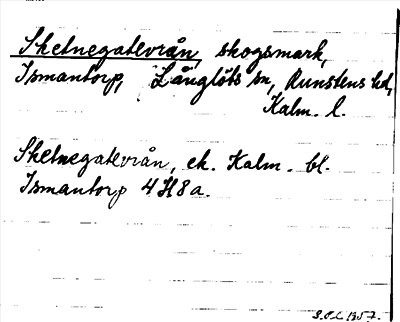 Skelnegatevrån, skogsmark,
Ismantorp, Långlöts sn, Runstens hd,
Kalm. l.
Skelnegatevrån, ek. Kalm. bl.
Ismantorp 4 H 8 a.
S.O.L 1957.